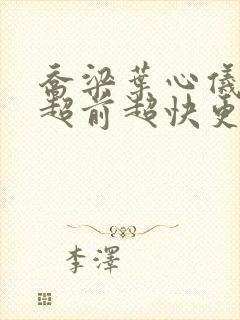 乔梁葉心儀
超前超快更
李澤